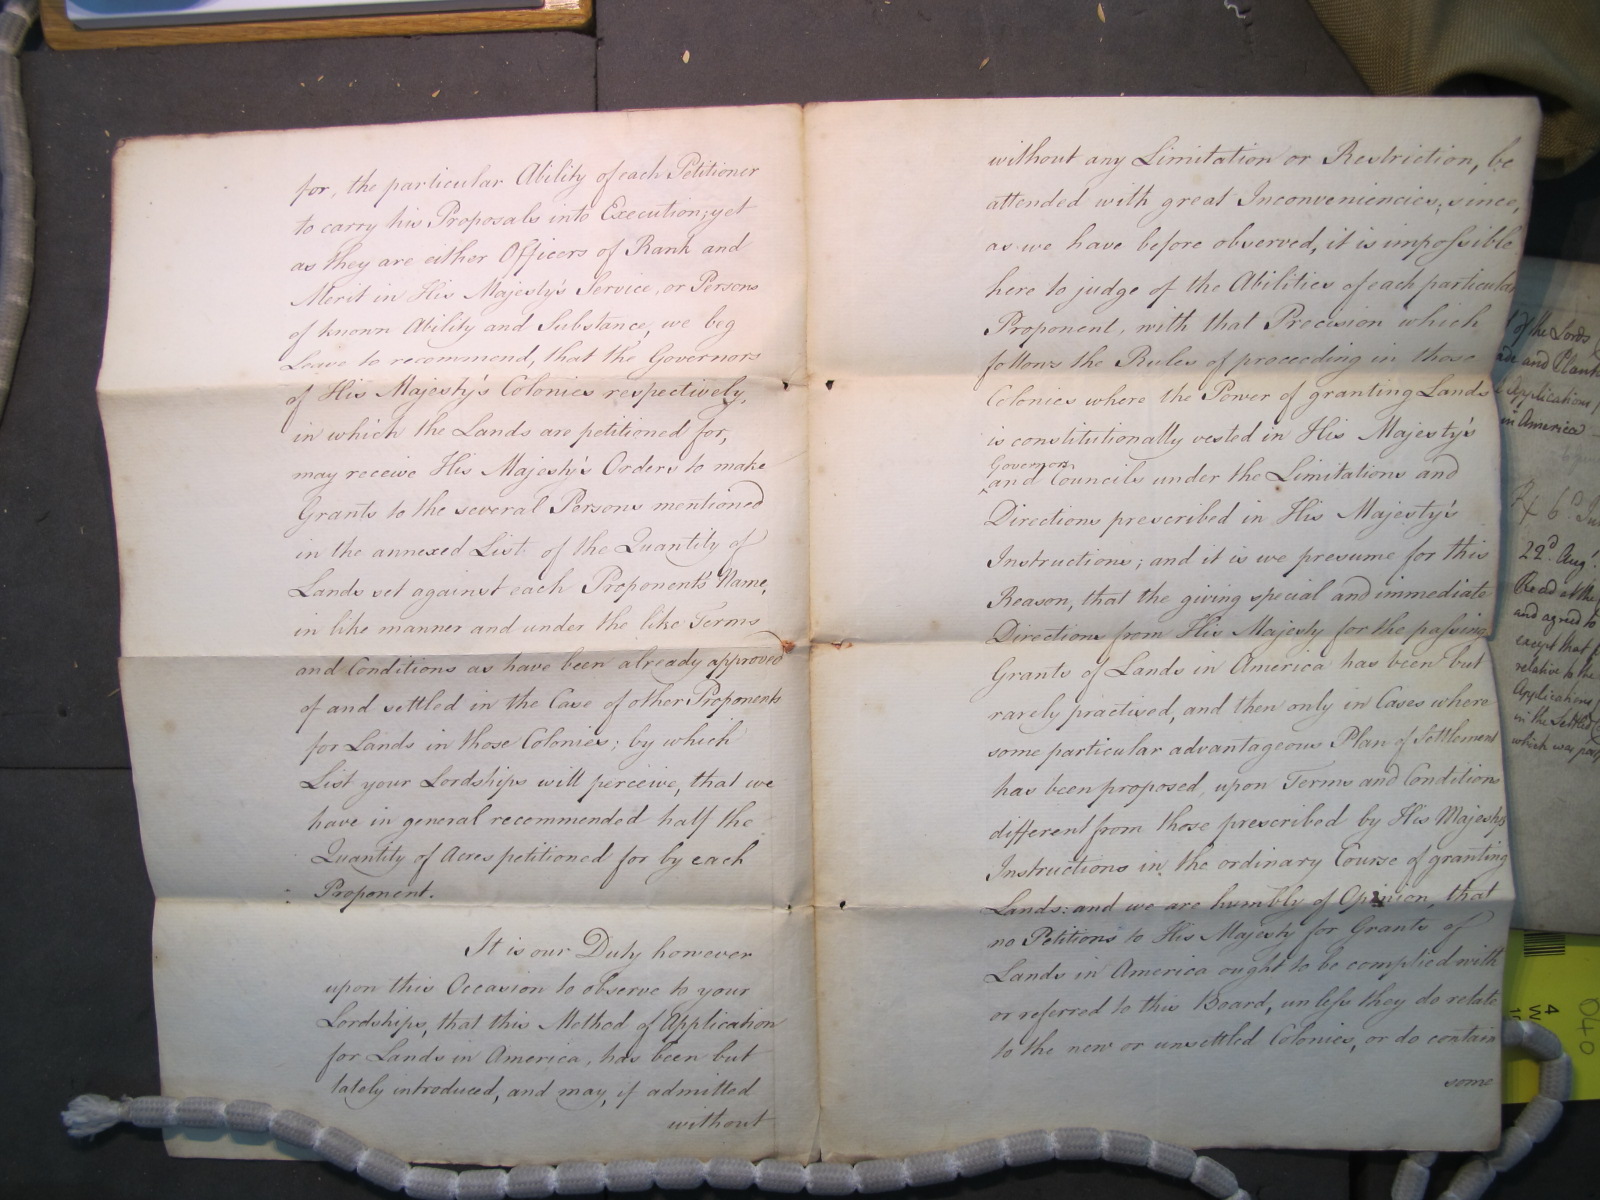 for, the particular Ability of each Petitioner
to carry his Proposals into Execution; yet
as they are either Officers of Rank and
Merit in His Majesty's Service, or Persons
of known Ability and Substance, we beg
Leave to recommend, that the Governors
of His Majesty's Colonies respectively,
in which the Lands are petitioned for,
may receive His Majesty's Orders to make
Grants to the several Persons mentioned
in the annexed List of the Quantity of
Lands set against each Proponents' Name,
in like manner and under the like Terms
and Conditions as have been already approved
of and settled in the Case of other Proponents
for Lands in those Colonies; by which
List your Lordships will perceive, that we
have in general recommended half the
Quantity of Acres petitioned for by each
Proponent.
It is our Duty however
upon this Occasion to observe to your
Lordships, that this Method of Application
for Lands in America, has been but
lately introduced, and may, if admitted
without
without any Limitation or Restriction, be
attended with great Inconveniencies; since,
as we have before observed, it is impossible
here to judge of the Abilities of each particular
Proponent, with that Precision which
follows the Rules of proceeding in those
Colonies where the Power of granting Lands
is constitutionally vested in His Majesty's
Governors
and Councils under the Limitations and
Directions prescribed in His Majesty's
Instructions; and it is we presume for this
Reason, that the giving special and immediate
Directions from His Majesty for the passing
Grants of Lands in America has been but
rarely practised, and then only in Cases where
some particular advantageous Plan of Settlement
has been proposed, upon Terms and Conditions
different from those prescribed by His Majesty's
Instructions in the ordinary Course of granting
Lands: and we are humbly of Opinion, that
no Petitions to His Majesty for Grants of
Lands in America ought to be complied with
or referred to this Board, unless they do relate
to the new or unsettled Colonies, or do contain
some
of the Lords
and Plant
Applications
in America
22d. Aug!
Read at the
and agreed to
except that
relative to the
Applications
in the settled
which was
040